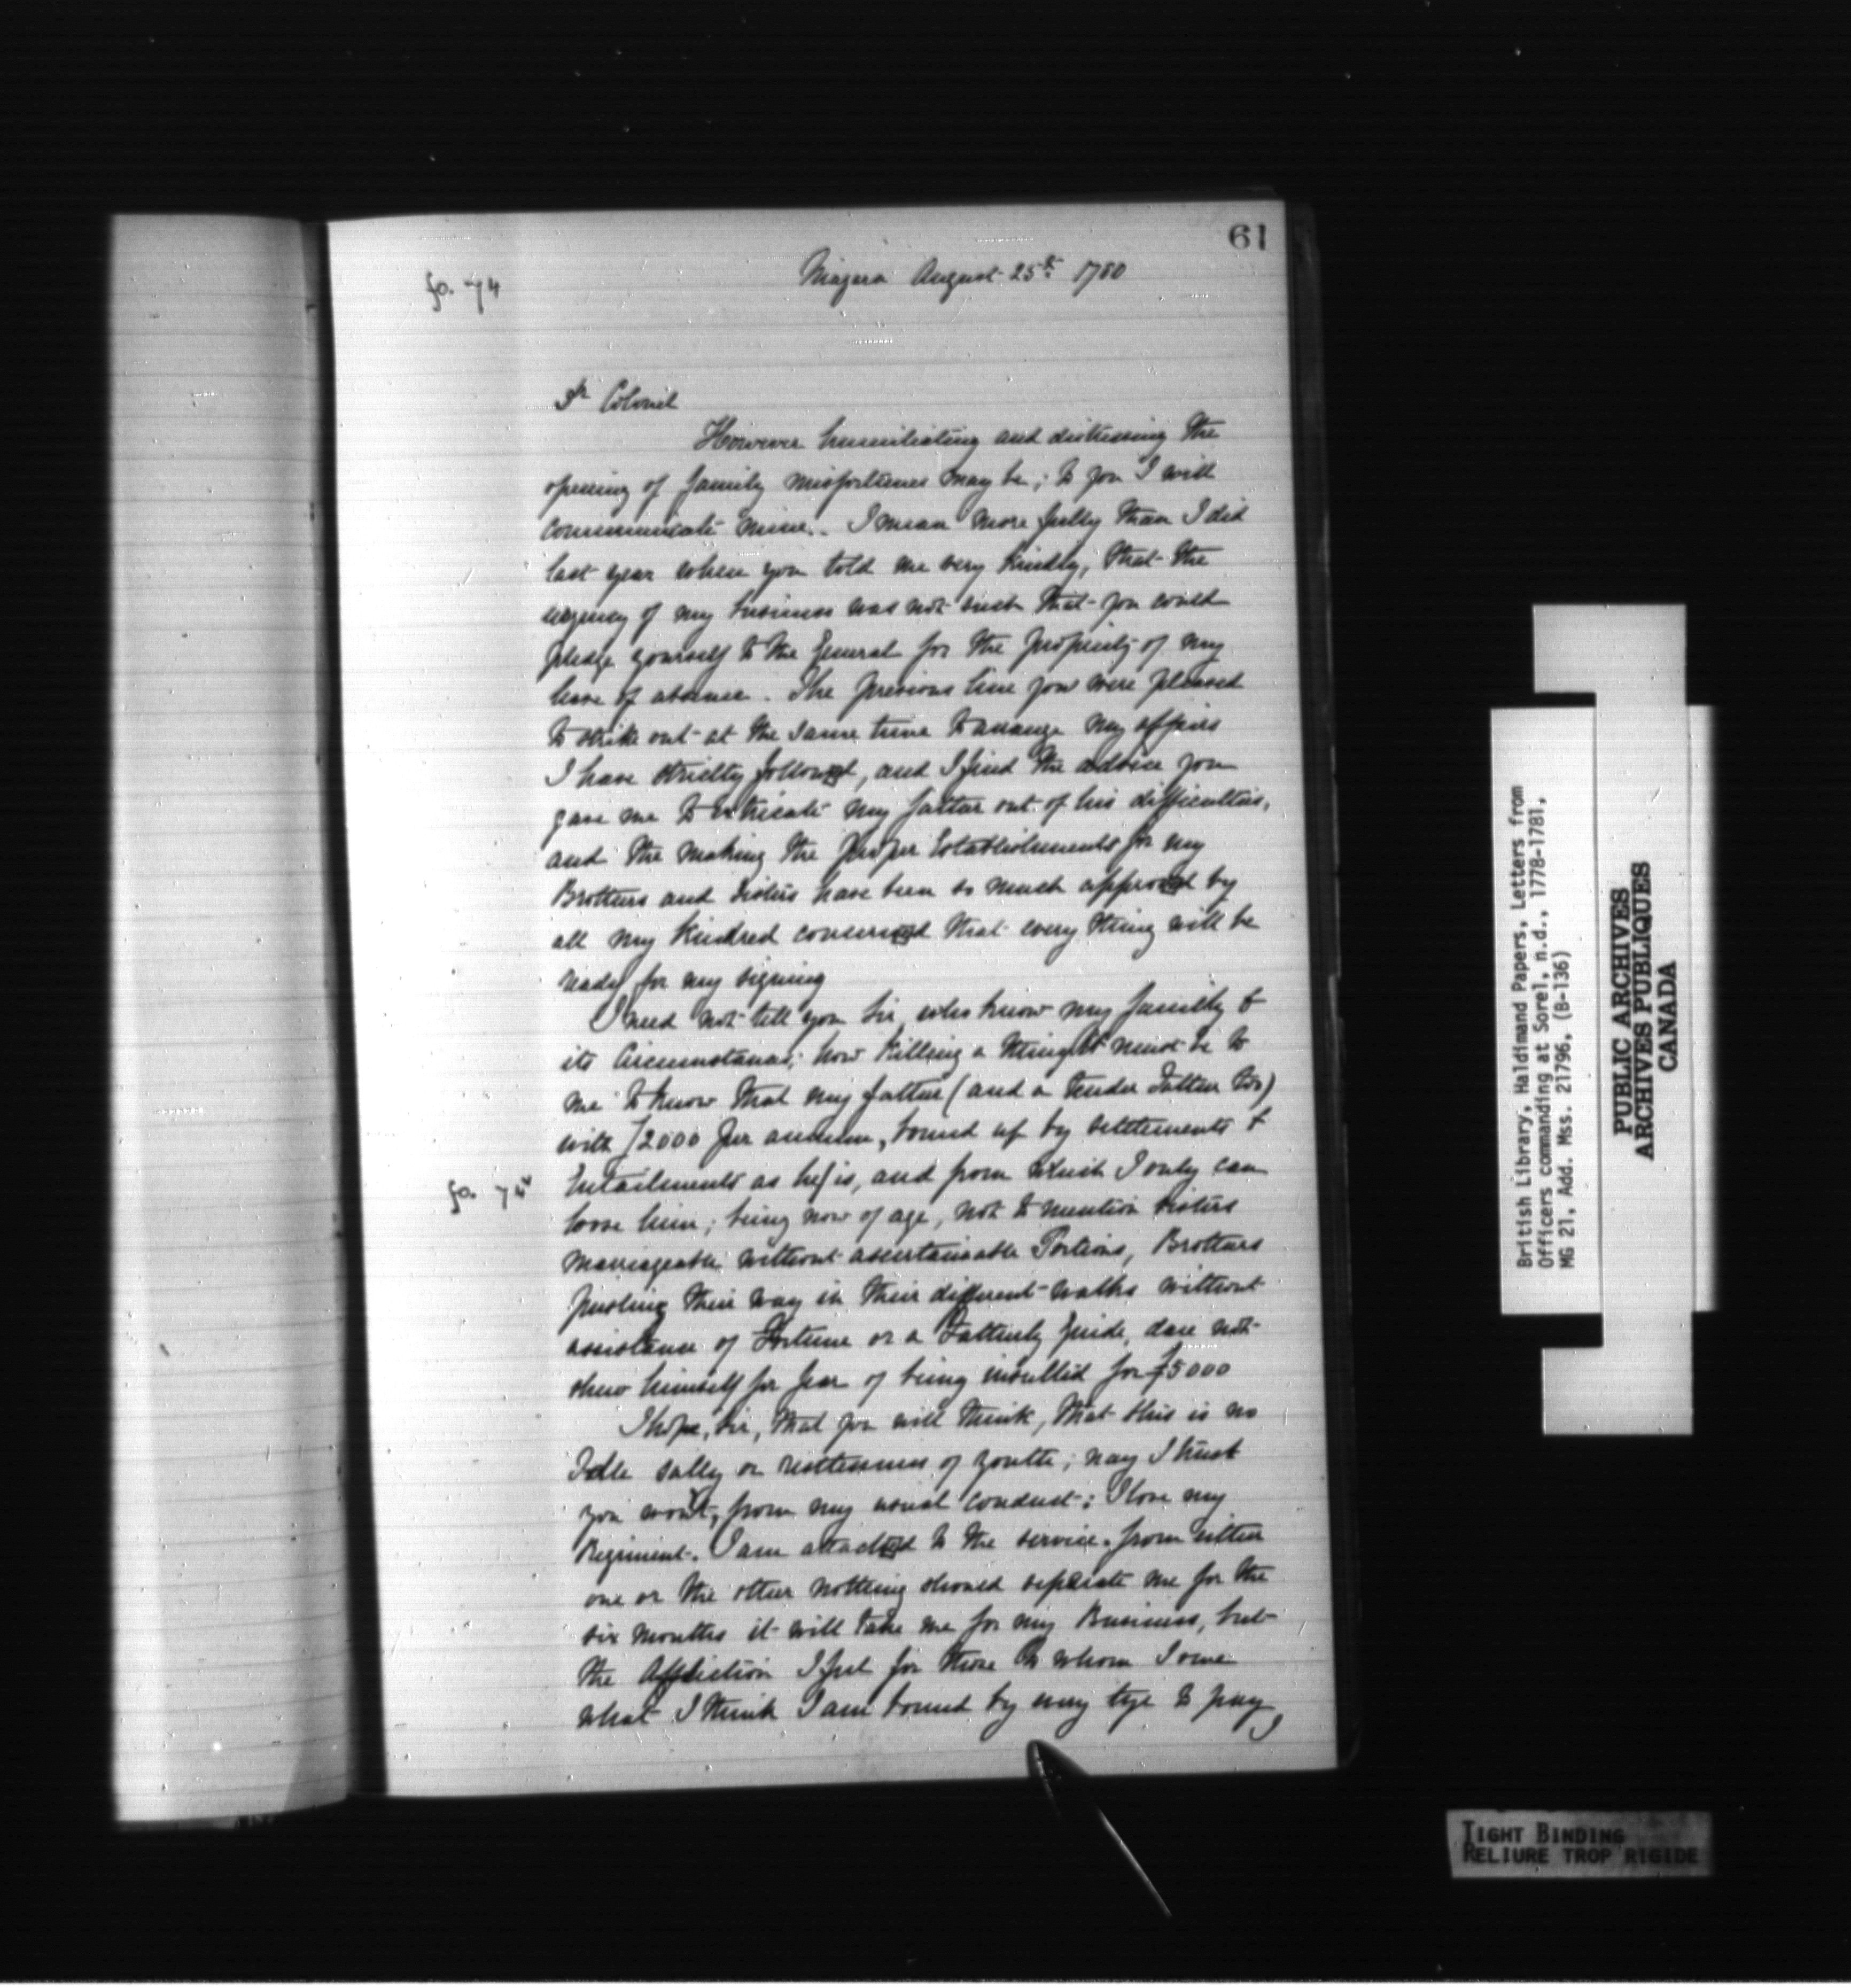 61
fo. 74
Niagara August 25th 1780
Dr Colonel
However humiliating and distressing the
opening of family misfortunes may be; to you I will
communicate mine. I mean more fully than I did
last year when you told me very kindly, that the
urgency of my business was not such that you could
pledge yourself to the General for the propriety of my
leave of absence. The previous line you were pleased
to strike out at the same time to arrange my affairs
I have strictly followed, and I find the advice you
gave me to extricate my father out of his difficulties,
and the making the proper Establishments for my
Brothers and Sisters have been so much approved by
all my Kindred concerned that every thing will be
ready for my signing
I need not tell you Sir, who know my family &
its Circumstances; how killing a thing it must be to
me to know that my father (and a tender Father too)
with £2000 per annum, bound up by settlements &
fo. 74v
Entailments as he is, and from which I only can
loose him; being now of age, not to mention sisters
marriageable without ascertainable Portions, Brothers
pushing their way in their different walks without
assistance of Fortune or a Fatherly guide, dare not
shew himself for fear of being insulted for £5000
I hope, Sir, that you will think, that this is no
Idle sally or restlessness of youth; nay I trust
you won't, from my usual conduct; I love my
Regiment. I am attached to the service. from either
one or the other nothing should separate me for the
six months it will take me for my Business, but
the Affliction I feel for those to whom I owe
what I think I am bound by every tye to pay
I
British Library, Haldimand Papers, Letters from
Officers commanding at Sorel, n.d., 1778-1781,
MG 21, Add. Mss. 21796, (B-136)
PUBLIC ARCHIVES
ARCHIVES PUBLIQUES
CANADA
TIGHT BINDING
RELIURE TROP RIGIDE